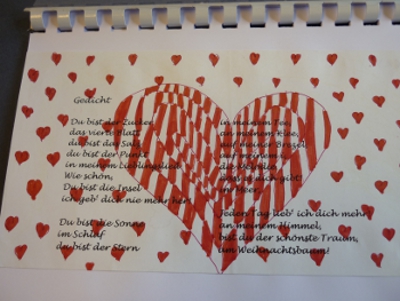 Gedicht
Du bist der Zucker, in meinem Tee,
das vierte Blatt, an meinem Klee,
du bist das Salz auf meiner Brezel
du bist der Punkt auf meinem i
in meinem Lieblingslied die Melodie
Wie schön, dass es dich gibt!
Du bist die Insel im Meer,
ich geb' dich nie mehr her!
Jeden Tag lieb' ich dich mehr,
Du bist die Sonne an meinem Himmel,
im Schlaf bist du der schönste Traum,
du bist der Stern am Weihnachtsbaum!